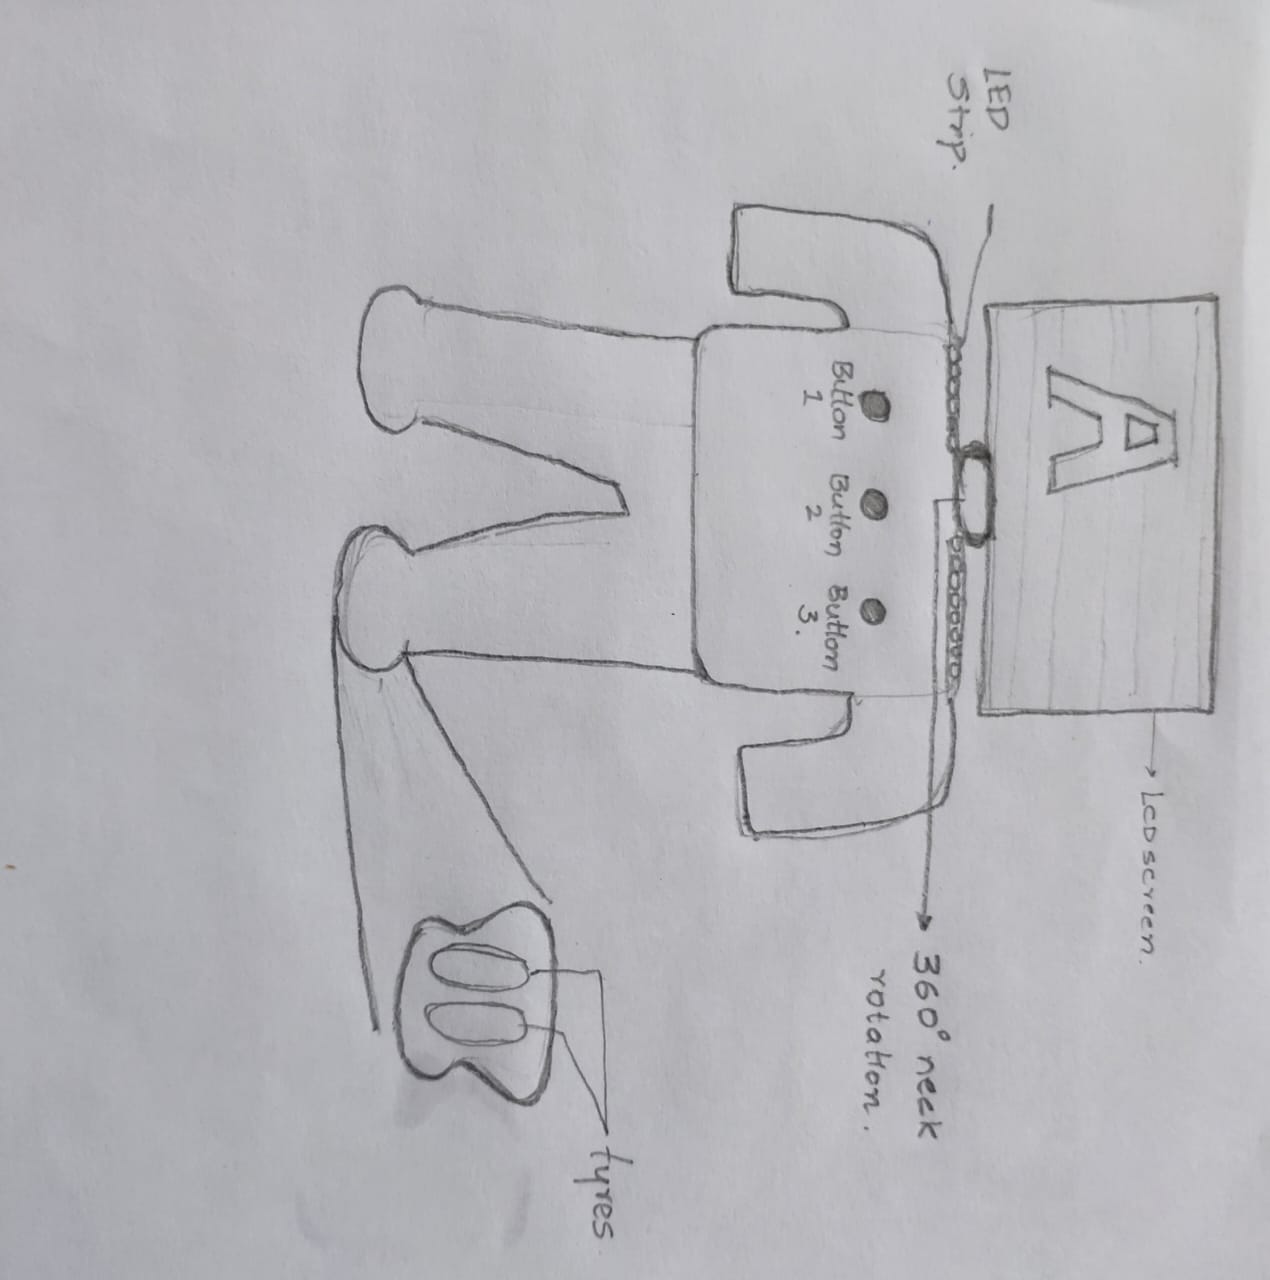 A
LCD screen.
LED
Strip.
360° neck
rotation.
Button
1
Button
2
Button
3.
tyres